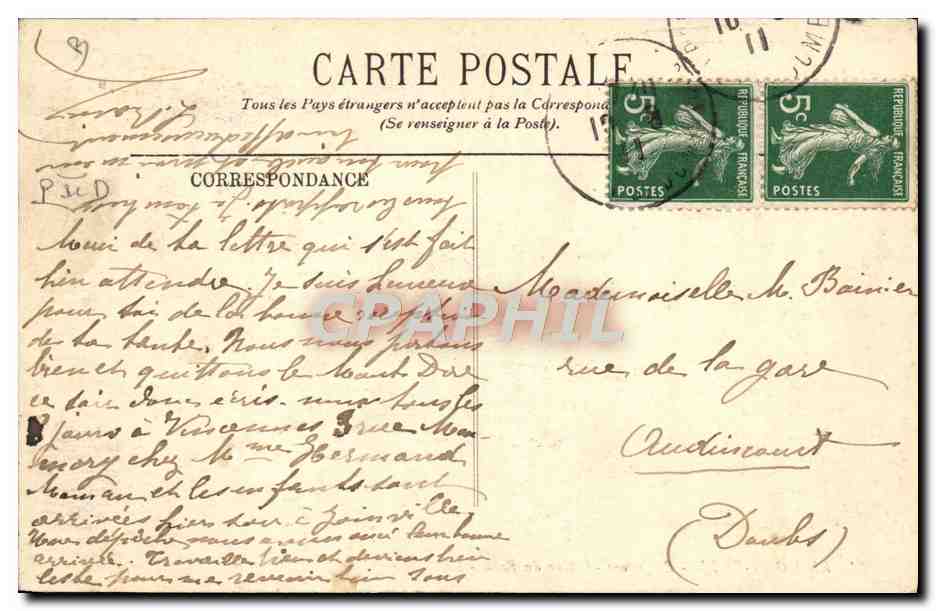 CARTE POSTALE
Tous les Pays étrangers n'acceptent pas la Correspond
(Se renseigner à la Poste).
CORRESPONDANCE
P du D
5c
REPUBLIQUE FRANÇAISE
POSTES
5c
REPUBLIQUE FRANÇAISE
POSTES
11
Merci de ta lettre qui s'est fait
bien attendre. Je suis heureux
pour toi de la bonne
de ta tante. Nous nous portons
bien et quittons le Mont Dore
ce soir donc écris-nous tous les
jours à Vincennes 3 rue Mon-
mory chez Mme Hermand
Maman et les enfants sont
arrivées hier soir à Joinville
Une dépêche nous a annoncé leur bonne
arrivée. Travaille bien et deviens bien
leste pour me revenir bien
Mademoiselle M. Bainier
rue de la gare
Audincourt
(Doubs)
CPAPHIL